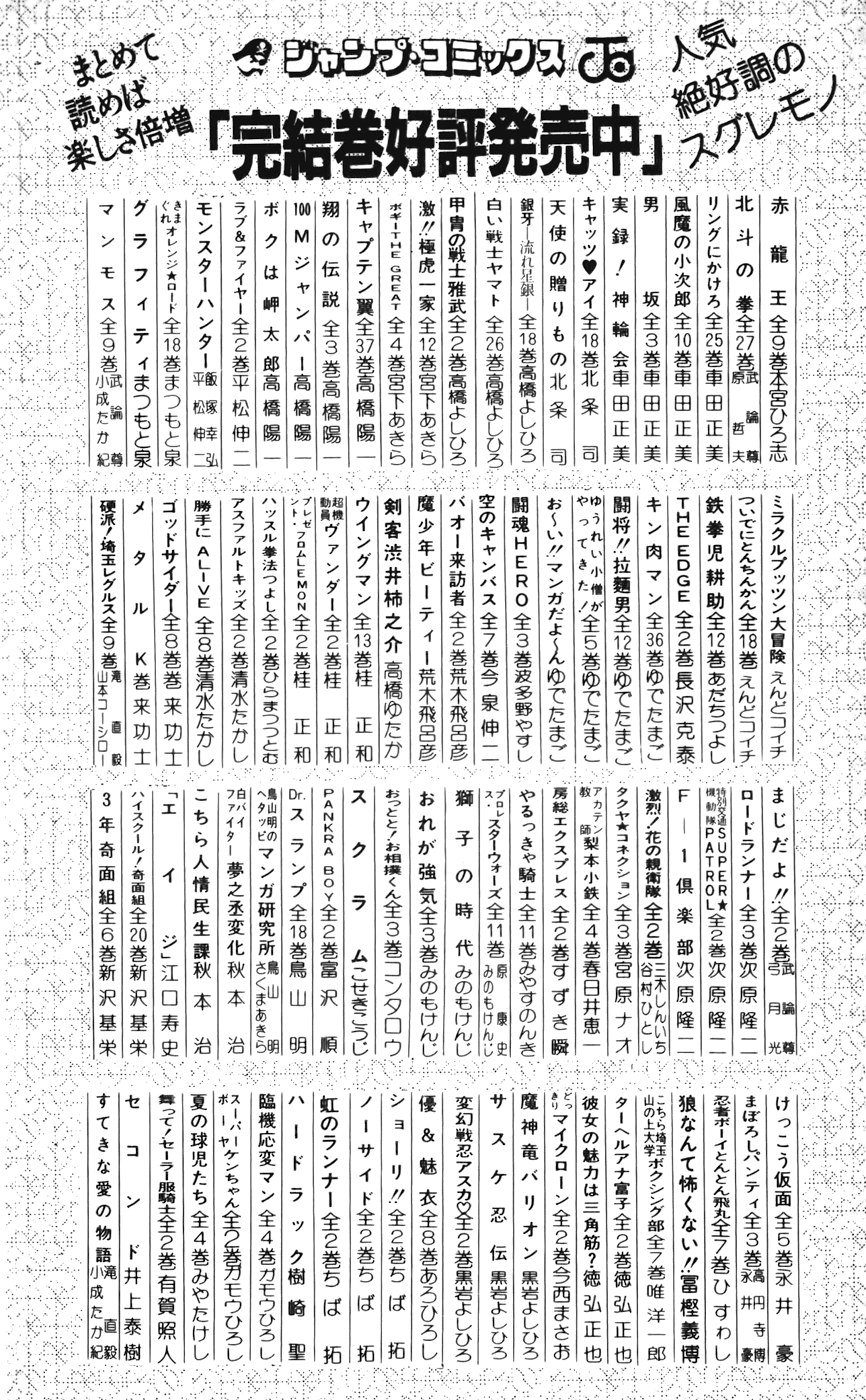 まとめて
読めば
楽しさ倍増
ジャンプ・コミックス
人気
絶好調の
スグレモノ
「完結巻好評発売中」
赤龍王全9巻本宮ひろ志
北斗の拳全27巻武論尊 原哲夫
リングにかけろ全25巻車田正美
風魔の小次郎全10巻車田正美
男坂全3巻車田正美
実録!神輪会車田正美
キャッツ♥アイ全18巻北条司
天使の贈りもの北条司
銀牙―流れ星銀―全18巻高橋よしひろ
白い戦士ヤマト全26巻高橋よしひろ
甲冑の戦士雅武全2巻高橋よしひろ
激!!極虎一家全12巻宮下あきら
ボギーTHE GREAT全4巻宮下あきら
キャプテン翼全37巻高橋陽一
翔の伝説全3巻高橋陽一
100Mジャンパー高橋陽一
ボクは岬太郎高橋陽一
ラブ&ファイヤー全2巻平松伸二
モンスターハンター飯塚幸弘 平松伸二
きまぐれオレンジ★ロード全18巻まつもと泉
グラフィティまつもと泉
マンモス全9巻武論尊 小成たか紀
ミラクルプッツン大冒険えんどコイチ
ついでにとんちんかん全18巻えんどコイチ
鉄拳児耕助全12巻あだちつよし
THE EDGE全2巻長沢克泰
キン肉マン全36巻ゆでたまご
闘将!!拉麵男全12巻ゆでたまご
ゆうれい小僧がやってきた!全5巻ゆでたまご
お〜い!!マンガだよ〜んゆでたまご
闘魂HERO全3巻波多野やすし
空のキャンバス全7巻今泉伸二
バオー来訪者全2巻荒木飛呂彦
魔少年ビーティー荒木飛呂彦
剣客渋井柿之介高橋ゆたか
ウイングマン全13巻桂正和
超機動員ヴァンダー全2巻桂正和
プレゼント・フロムLEMON全2巻桂正和
ハッスル拳法つよし全2巻ひらまつつとむ
アスファルトキッズ全2巻清水たかし
勝手にALIVE全8巻清水たかし
ゴッドサイダー全8巻巻来功士
メタルK巻来功士
硬派!埼玉レグルス全9巻滝直毅 山本コーシロー
まじだよ!!全2巻武論尊 弓月光
ロードランナー全3巻次原隆二
特別交通機動隊SUPER★PATROL全2巻次原隆二
F―1倶楽部次原隆二
激烈!花の親衛隊全2巻三木しんいち 谷村ひとし
タクヤ★コネクション全3巻宮原ナオ
アカテン教師梨本小鉄全4巻春日井恵一
房総エクスプレス全2巻すずき瞬
やるっきゃ騎士全11巻みやすのんき
プロレス・スターウォーズ全11巻原康史 みのもけんじ
獅子の時代みのもけんじ
おれが強気全3巻みのもけんじ
おっとと!お相撲くん全3巻コンタロウ
スクラムこせきこうじ
PANKRA BOY全2巻富沢順
Dr.スランプ全18巻鳥山明
鳥山明のヘタッピマンガ研究所鳥山明 さくまあきら
白バイファイター夢之丞変化秋本治
こちら人情民生課秋本治
「エイジ」江口寿史
ハイスクール!奇面組全20巻新沢基栄
3年奇面組全6巻新沢基栄
けっこう仮面全5巻永井豪
まぼろしパンティ全3巻高円寺博 永井豪
忍者ボーイとんとん飛丸全7巻ひすわし
狼なんて怖くない!!冨樫義博
こちら埼玉山の上大学ボクシング部全7巻唯洋一郎
ターヘルアナ富子全2巻徳弘正也
彼女の魅力は三角筋?徳弘正也
どっきりマイクローン全2巻今西まさお
魔神竜バリオン黒岩よしひろ
サスケ忍伝黒岩よしひろ
変幻戦忍アスカ♡全2巻黒岩よしひろ
優&魅衣全8巻あろひろし
ショーリ!!全2巻ちば拓
ノーサイド全2巻ちば拓
虹のランナー全2巻ちば拓
ハードラック樹崎聖
臨機応変マン全4巻ガモウひろし
スーパーボーヤケンちゃん全2巻ガモウひろし
夏の球児たち全4巻みやたけし
舞って!セーラー服騎士全2巻有賀照人
セコンド井上泰樹
すてきな愛の物語滝直毅 小成たか紀